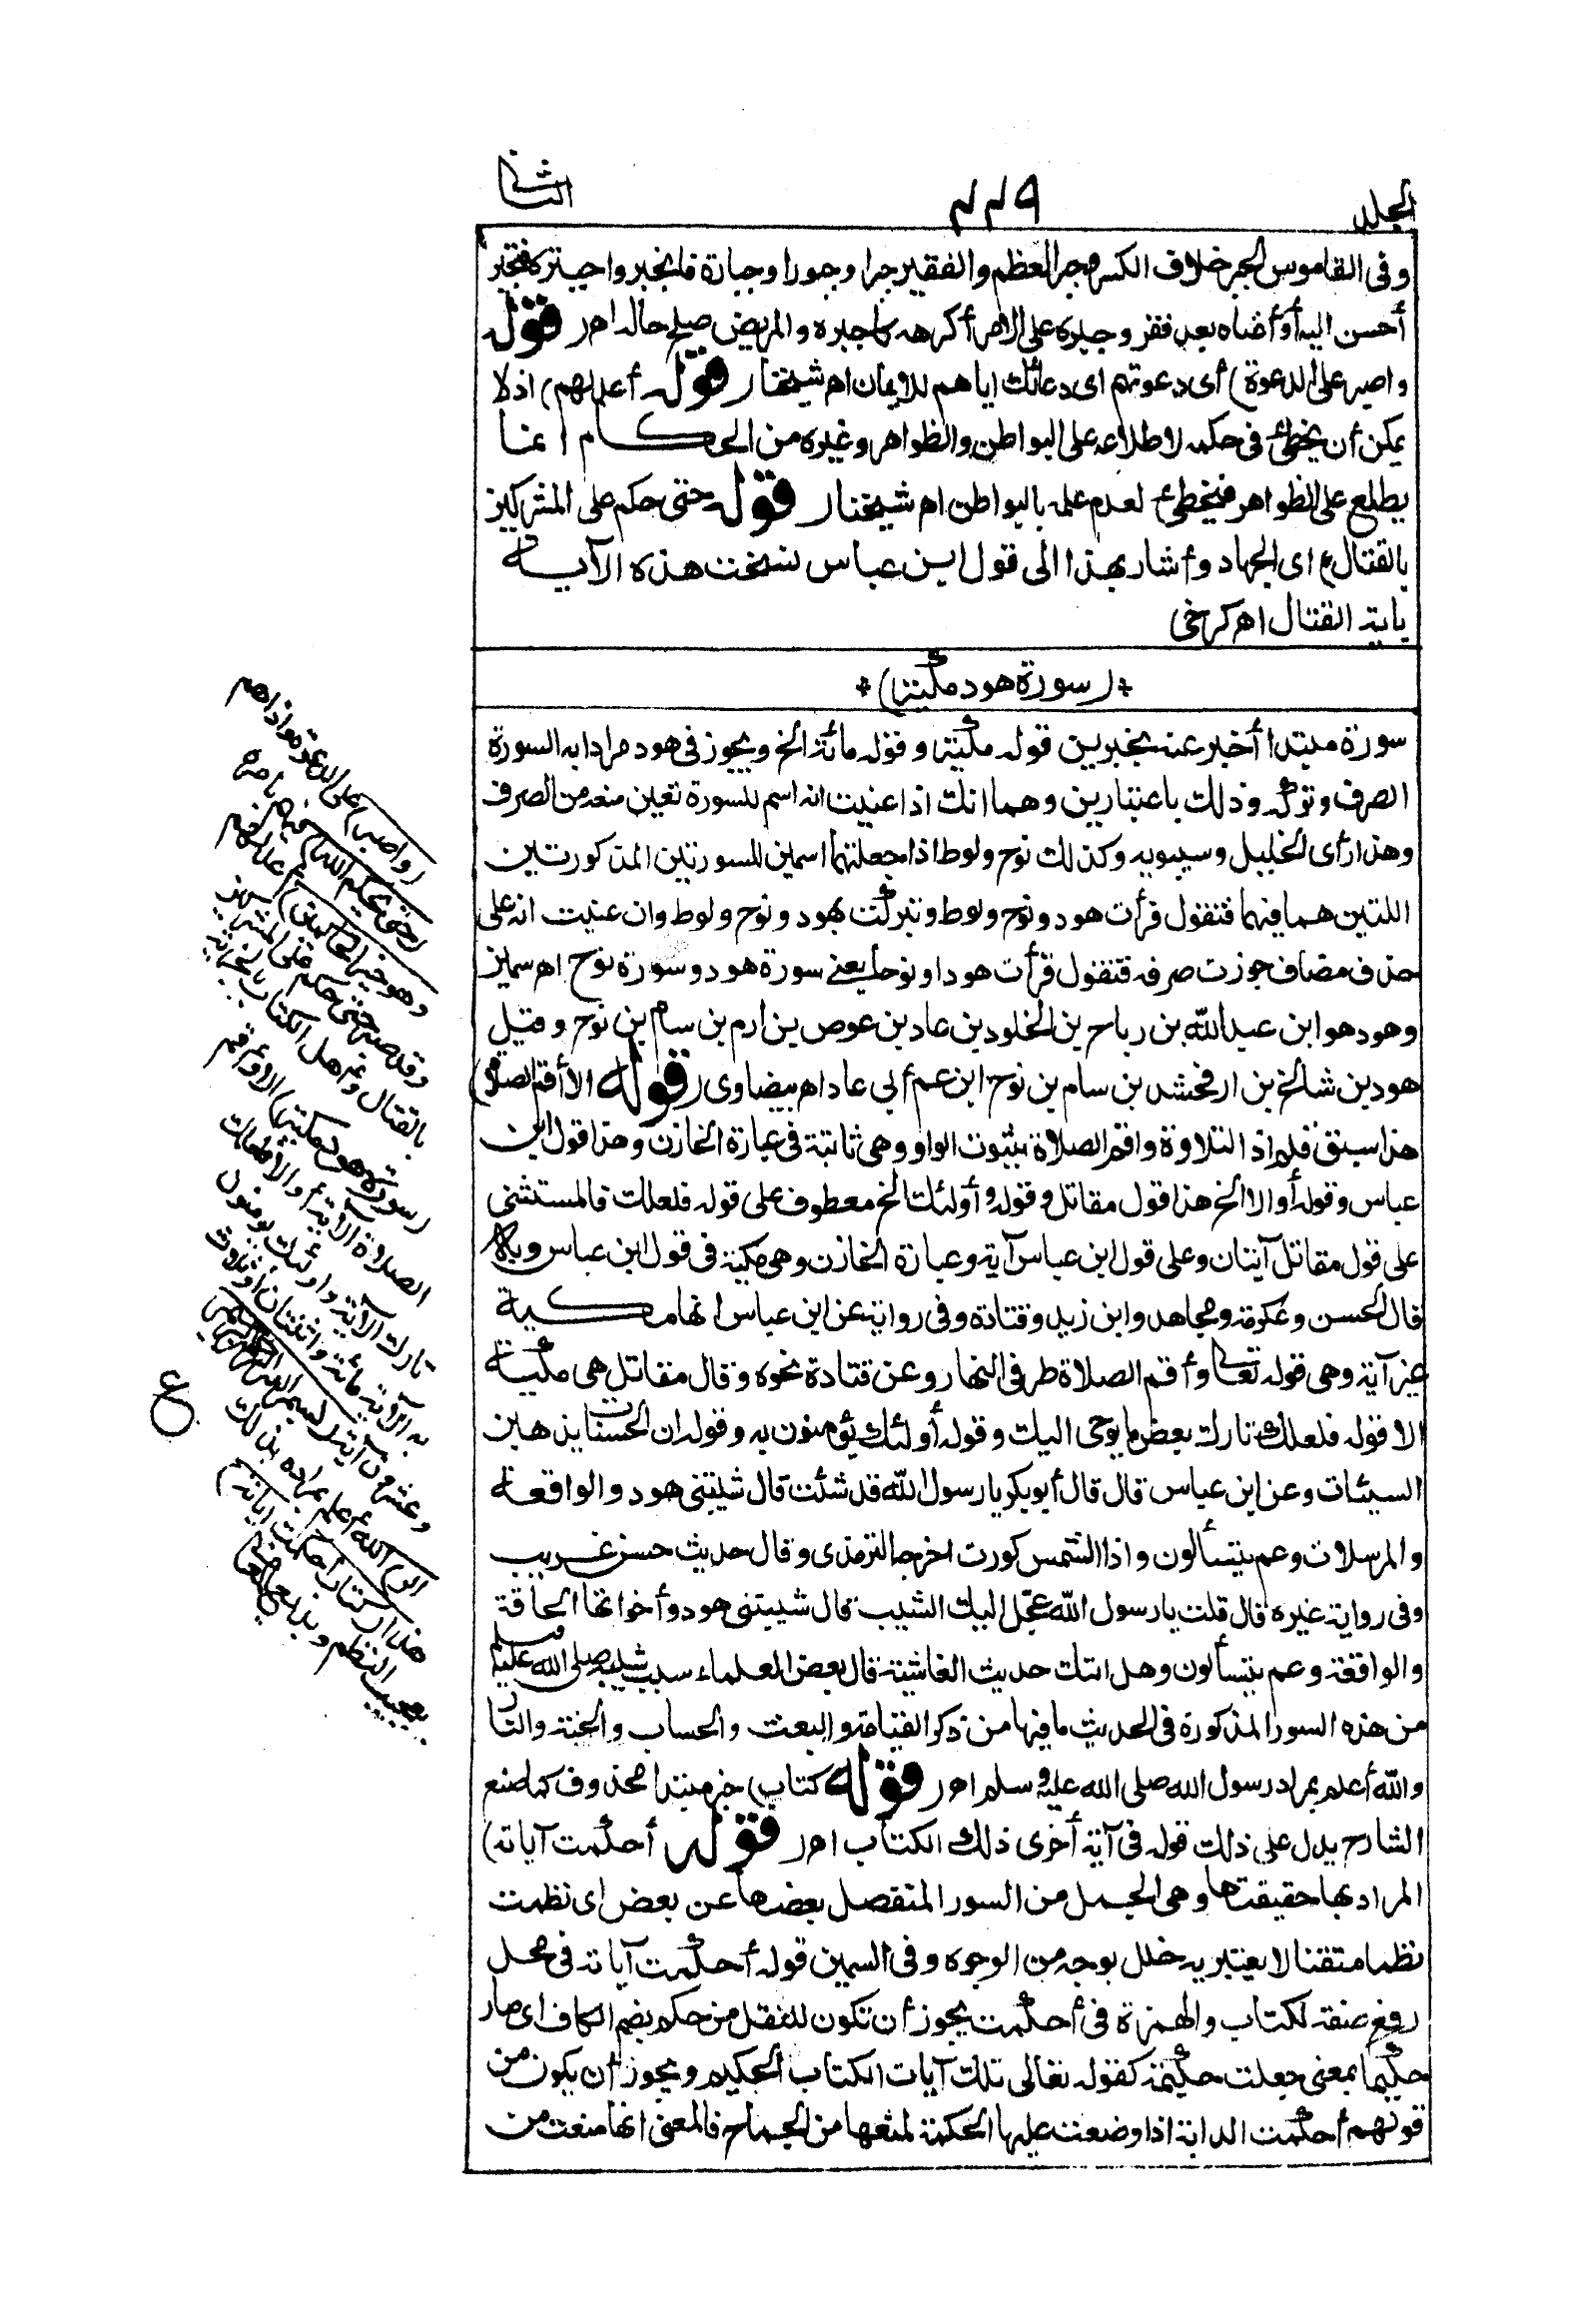 الجلد
٤٤٩
الثانى
وفى القاموس الجبر خلاف الكسر وجبر العظم والفقير جبرا وجبورا وجبارة فانجبر واجتبره فتجبر
أحسن اليه أو أغناه بعد فقر وجبره على الامر أكرهه كاجبره والمريض صلح حاله اهـ (قوله
واصبر على الدعوة) أى دعوتهم اى دعائك اياهم للايمان اهـ شيخنا (قوله أعدلهم) اذ لا
يمكن أن يخطئ فى حكمه لاطلاعه على البواطن والظواهر وغيره من الحكام انما
يطلع على الظواهر فيخطئ لعدم علمه بالبواطن اهـ شيخنا (قوله حتى حكم على المشركين
بالقتال) اى الجهاد وأشار بهذا الى قول ابن عباس نسخت هذه الآية
باية القتال اهـ كرخى
*(سورة هود مكية)*
سورة مبتدا أخبر عنه بخبرين قوله مكية وقوله مائة الخ ويجوز فى هود مرادا به السورة
الصرف وتركه وذلك باعتبارين وهما انك اذا عنيت انه اسم للسورة تعين منعه من الصرف
وهذا رأى الخليل وسيبويه وكذلك نوح ولوط اذا جعلتهما اسمين للسورتين المذكورتين
اللتين هما فيهما فتقول قرأت هود ونوح ولوط وتبركت بهود ونوح ولوط وان عنيت انه على
حذف مضاف جوزت صرفه فتقول قرأت هودا ونوحا يعنى سورة هود وسورة نوح اهـ سمين
وهود هو ابن عبد الله بن رباح بن الخلود بن عاد بن عوص بن ارم بن سام بن نوح وقيل
هود بن شالخ بن ارفخشد بن سام بن نوح ابن عم أبى عاد اهـ بيضاوى (قوله الا أقم الصلاة)
هذا سبق قلم اذ التلاوة واقم الصلاة بثبوت الواو وهى ثابتة فى عبارة الخازن وهذا قول ابن
عباس وقوله أو الا الخ هذا قول مقاتل وقوله وأولئك الخ معطوف على قوله فلعلك فالمستثنى
على قول مقاتل آيتان وعلى قول ابن عباس آية وعبارة الخازن وهى مكية فى قول ابن عباس وبه
قال الحسن وعكرمة ومجاهد وابن زيد وقتادة وفى رواية عن ابن عباس انها مكية
غير آية وهى قوله تعالى وأقم الصلاة طرفى النهار وعن قتادة نحوه وقال مقاتل هى مكية
الا قوله فلعلك تارك بعض ما يوحى اليك وقوله أولئك يؤمنون به وقوله ان الحسنات يذهبن
السيئات وعن ابن عباس قال قال أبو بكر يا رسول الله قد شئت قال شيبتنى هود والواقعة
والمرسلات وعم يتسألون واذا الشمس كورت اخرجه الترمذى وقال حديث حسن غريب
وفى رواية غيره قال قلت يا رسول الله عجل اليك الشيب قال شيبتنى هود وأخواتها الحاقة
والواقعة وعم يتسألون وهل اتتك حديث الغاشية قال بعض العلماء سبب شيبه صلى الله عليه وسلم
من هذه السور المذكورة فى الحديث ما فيها من ذكر القيامة والبعث والحساب والجنة والنار
والله أعلم بمراد رسول الله صلى الله عليه وسلم اهـ (قوله كتاب) خبر مبتدا محذوف كما صنع
الشارح يدل على ذلك قوله فى آية أخرى ذلك الكتاب اهـ (قوله أحكمت آياته)
المراد بها حقيقتها وهى الجمل من السور المنفصل بعضها عن بعض اى نظمت
نظما متقنا لا يعتريه خلل بوجه من الوجوه وفى السمين قوله أحكمت آياته فى محل
رفع صفة لكتاب والهمزة فى أحكمت يجوز أن تكون للنقل من حكم بضم الكاف اى صار
حكيما بمعنى جعلت حكيمة كقوله تعالى تلك آيات الكتاب الحكيم ويجوز أن يكون من
قولهم أحكمت الدابة اذا وضعت عليها الحكمة لمنعها من الجماح فالمعنى انها منعت من
(واصبر) على الدعوة وأذاهم
(حتى يحكم الله) فيهم بامره
(وهو خير الحاكمين) أعدلهم
وقد صبر حتى حكم على المشركين
بالقتال وأهل الكتاب بالجزية
(سورة هود مكية) الا أقم
الصلاة الآية أو الا فلعلك
تارك الآية وأولئك يؤمنون
به الآية مائة واثنتان أو ثلاث
وعشرون آية (بسم الله الرحمن الرحيم
الر) الله أعلم بمراده بذلك
هذا (كتاب أحكمت آياته)
بعجيب النظم وبديع المعانى
ع